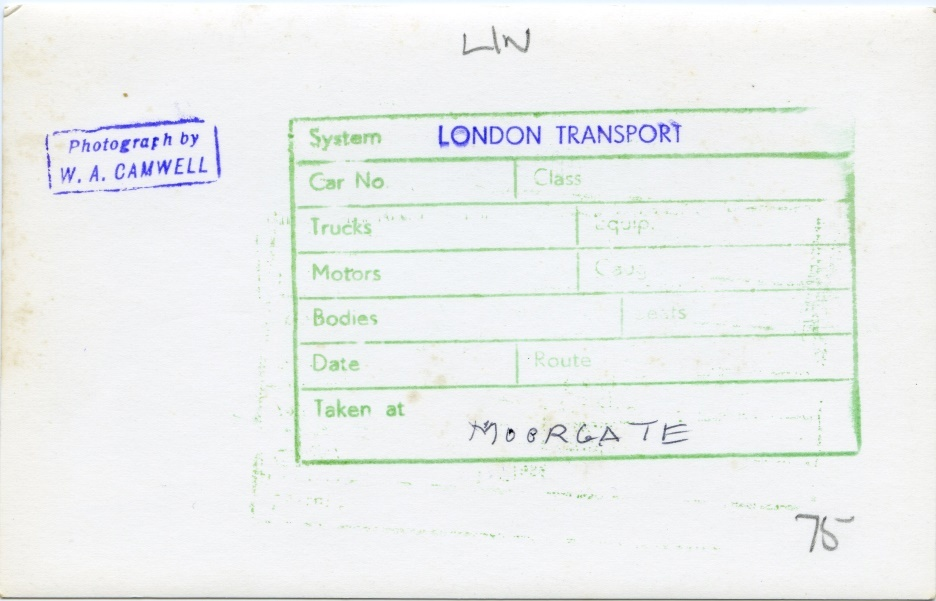 LIN
Photograph by
W. A. CAMWELL
System LONDON TRANSPORT
Car No. Class
Trucks Equip.
Motors
Bodies Seats
Date Route
Taken at
MOORGATE
75